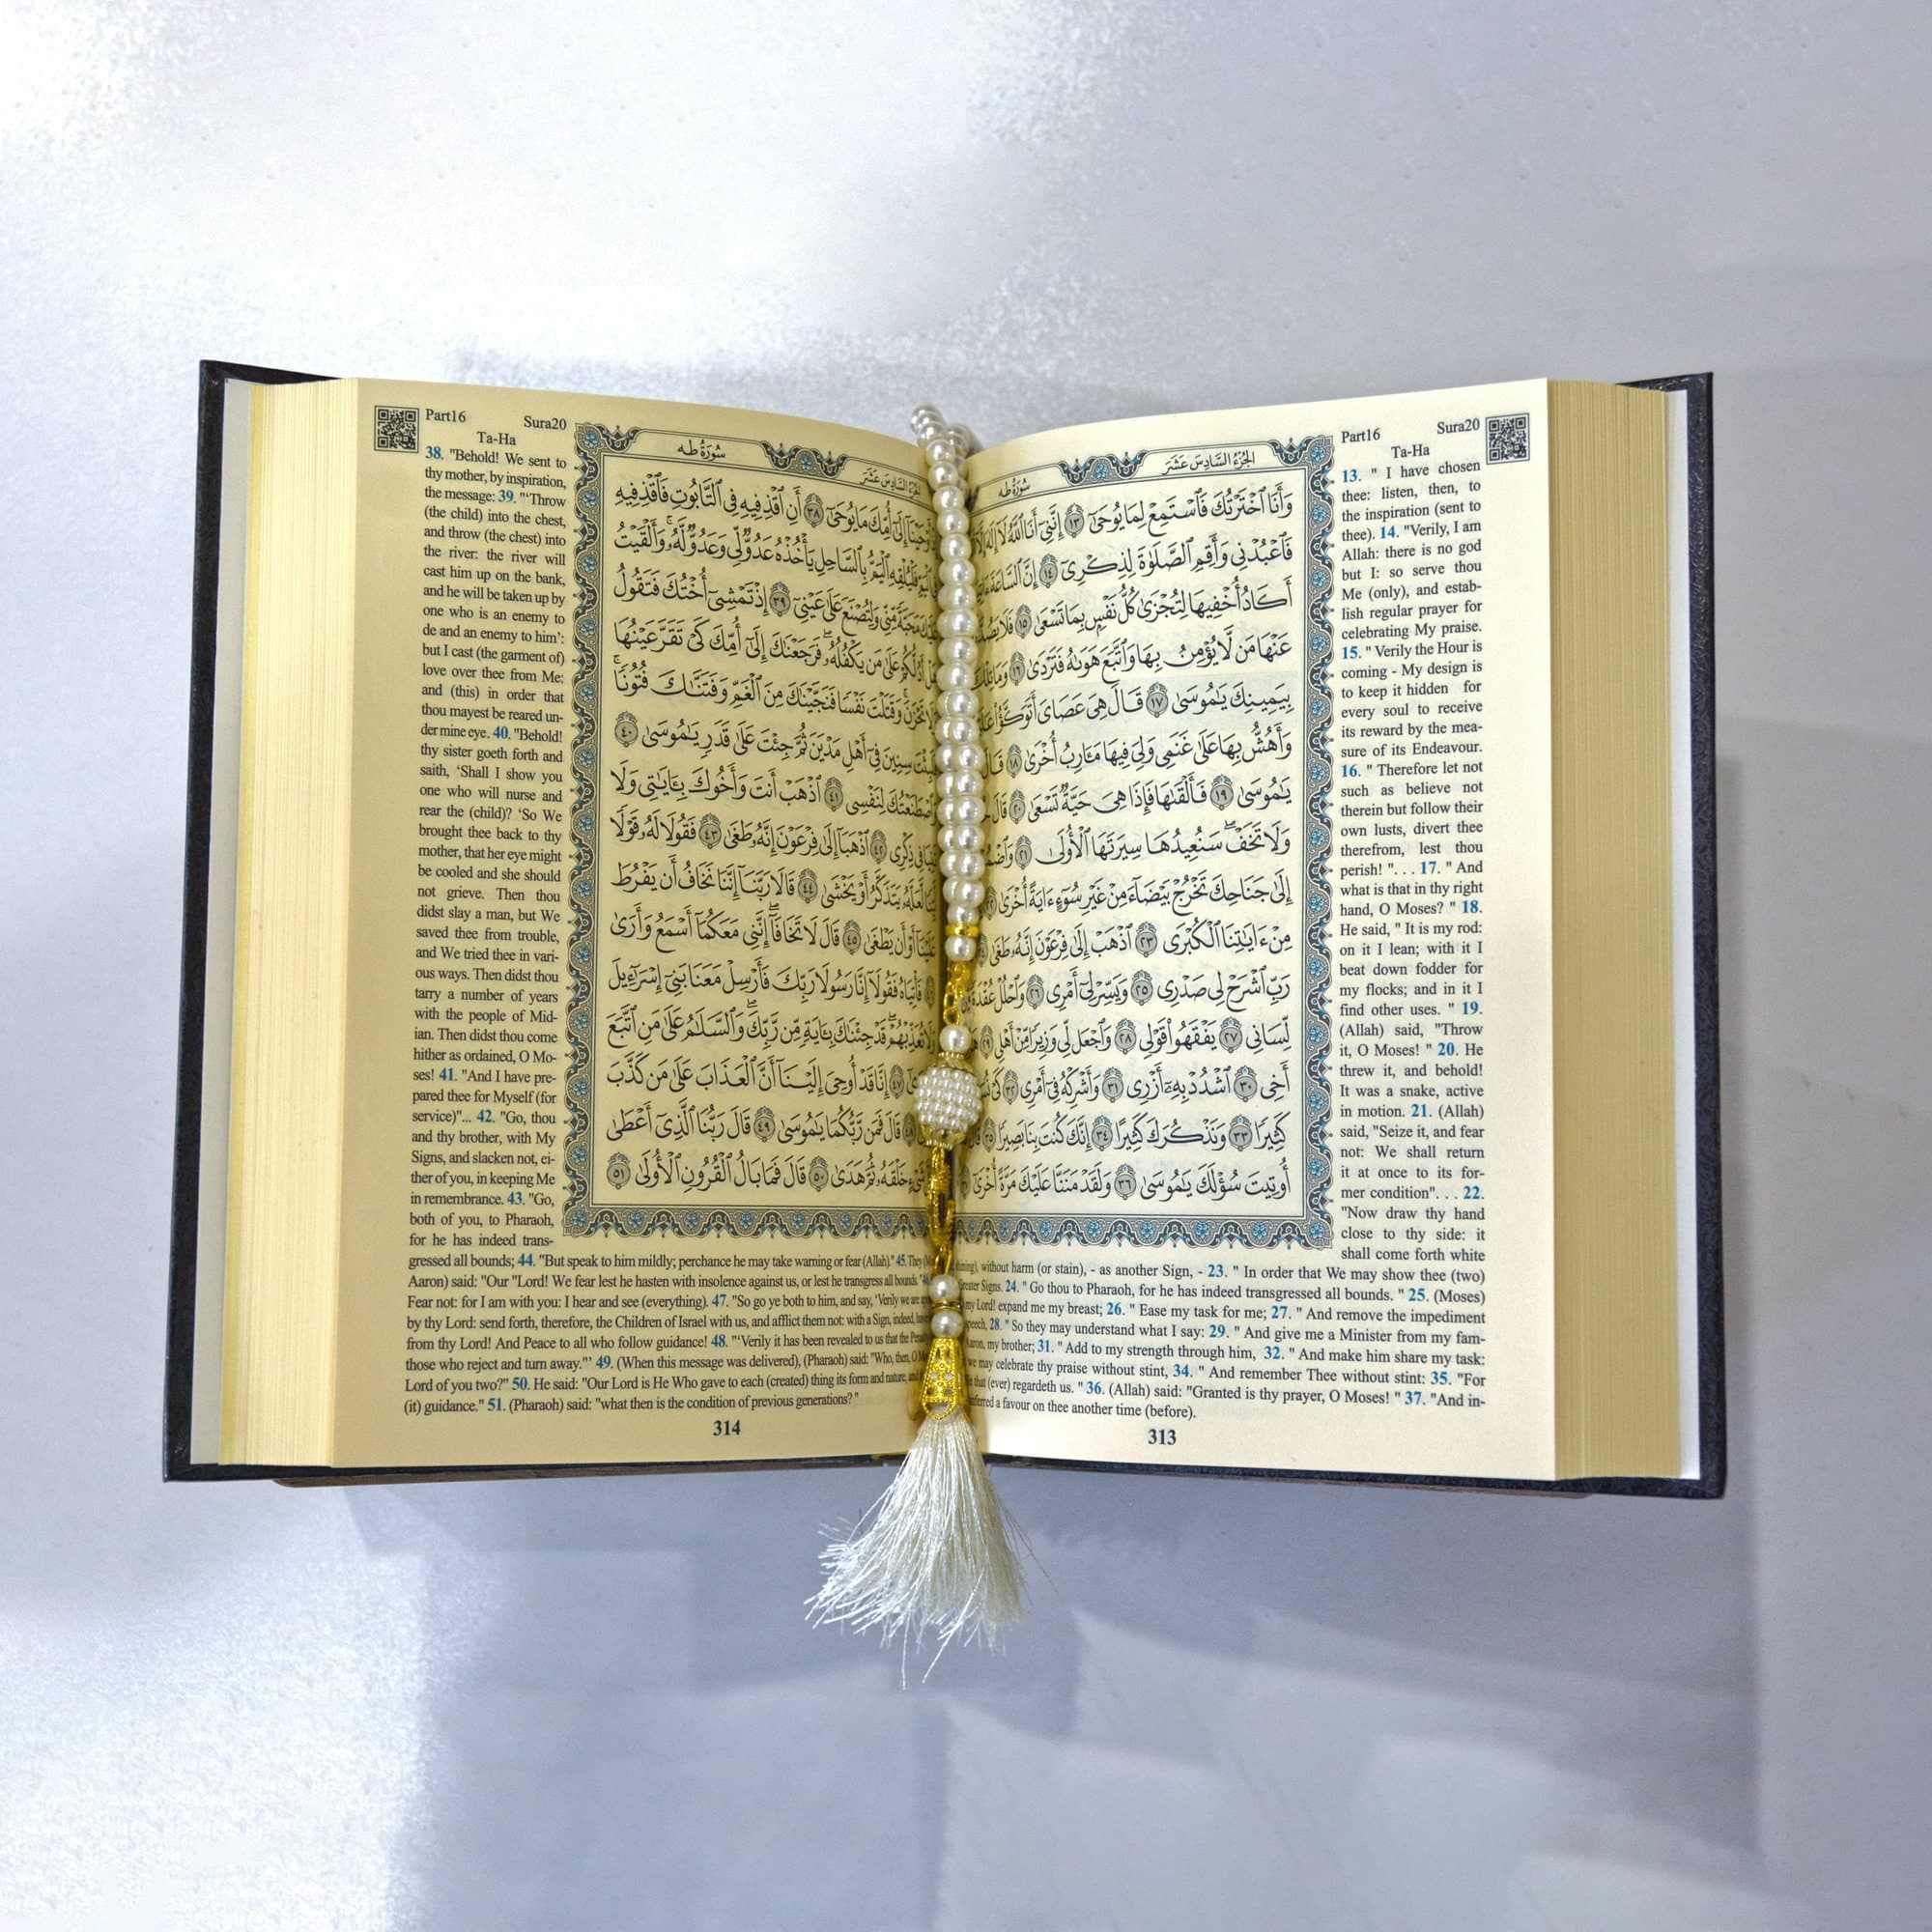 Part16 Sura20
Ta-Ha
13. " I have chosen
thee: listen, then, to
the inspiration (sent to
thee). 14. "Verily, I am
Allah: there is no god
but I: so serve thou
Me (only), and estab-
lish regular prayer for
celebrating My praise.
15. " Verily the Hour is
coming - My design is
to keep it hidden for
every soul to receive
its reward by the mea-
sure of its Endeavour.
16. " Therefore let not
such as believe not
therein but follow their
own lusts, divert thee
therefrom, lest thou
perish! ". . . 17. " And
what is that in thy right
hand, O Moses? " 18.
He said, " It is my rod:
on it I lean; with it I
beat down fodder for
my flocks; and in it I
find other uses. " 19.
(Allah) said, "Throw
it, O Moses! " 20. He
threw it, and behold!
It was a snake, active
in motion. 21. (Allah)
said, "Seize it, and fear
not: We shall return
it at once to its for-
mer condition". . . 22.
"Now draw thy hand
close to thy side: it
shall come forth white
without harm (or stain), - as another Sign, - 23. " In order that We may show thee (two)
Greater Signs. 24. " Go thou to Pharaoh, for he has indeed transgressed all bounds. " 25. (Moses)
my Lord! expand me my breast; 26. " Ease my task for me; 27. " And remove the impediment
speech, 28. " So they may understand what I say: 29. " And give me a Minister from my fam-
Aaron, my brother; 31. " Add to my strength through him, 32. " And make him share my task:
we may celebrate thy praise without stint, 34. " And remember Thee without stint: 35. "For
that (ever) regardeth us. " 36. (Allah) said: "Granted is thy prayer, O Moses! " 37. "And in-
a favour on thee another time (before).
الجزء السادس عشر سورة طه
وَأَنَا ٱخْتَرْتُكَ فَٱسْتَمِعْ لِمَا يُوحَىٰٓ ١٣ إِنَّنِىٓ أَنَا ٱللَّهُ لَآ إِلَٰهَ
فَٱعْبُدْنِى وَأَقِمِ ٱلصَّلَوٰةَ لِذِكْرِىٓ ١٤ إِنَّ ٱلسَّاعَةَ
أَكَادُ أُخْفِيهَا لِتُجْزَىٰ كُلُّ نَفْسٍۭ بِمَا تَسْعَىٰ ١٥ فَلَا
عَنْهَا مَن لَّا يُؤْمِنُ بِهَا وَٱتَّبَعَ هَوَىٰهُ فَتَرْدَىٰ ١٦ وَمَا تِلْكَ
بِيَمِينِكَ يَٰمُوسَىٰ ١٧ قَالَ هِىَ عَصَاىَ أَتَوَكَّؤُا۟
وَأَهُشُّ بِهَا عَلَىٰ غَنَمِى وَلِىَ فِيهَا مَـَٔارِبُ أُخْرَىٰ ١٨ قَالَ
يَٰمُوسَىٰ ١٩ فَأَلْقَىٰهَا فَإِذَا هِىَ حَيَّةٌ تَسْعَىٰ ٢٠ قَالَ
وَلَا تَخَفْ سَنُعِيدُهَا سِيرَتَهَا ٱلْأُولَىٰ ٢١
إِلَىٰ جَنَاحِكَ تَخْرُجْ بَيْضَآءَ مِنْ غَيْرِ سُوٓءٍ ءَايَةً أُخْرَىٰ ٢٢
مِنْ ءَايَٰتِنَا ٱلْكُبْرَى ٢٣ ٱذْهَبْ إِلَىٰ فِرْعَوْنَ إِنَّهُۥ طَغَىٰ
رَبِّ ٱشْرَحْ لِى صَدْرِى ٢٥ وَيَسِّرْ لِىٓ أَمْرِى ٢٦ وَٱحْلُلْ عُقْدَةً
لِّسَانِى ٢٧ يَفْقَهُوا۟ قَوْلِى ٢٨ وَٱجْعَل لِّى وَزِيرًا مِّنْ أَهْلِى ٢٩
أَخِى ٣٠ ٱشْدُدْ بِهِۦٓ أَزْرِى ٣١ وَأَشْرِكْهُ فِىٓ أَمْرِى ٣٢ كَىْ
كَثِيرًا ٣٣ وَنَذْكُرَكَ كَثِيرًا ٣٤ إِنَّكَ كُنتَ بِنَا بَصِيرًا ٣٥
أُوتِيتَ سُؤْلَكَ يَٰمُوسَىٰ ٣٦ وَلَقَدْ مَنَنَّا عَلَيْكَ مَرَّةً أُخْرَىٰٓ
313
Part16 Sura20
Ta-Ha
38. "Behold! We sent to
thy mother, by inspiration,
the message: 39. "'Throw
(the child) into the chest,
and throw (the chest) into
the river: the river will
cast him up on the bank,
and he will be taken up by
one who is an enemy to
de and an enemy to him':
but I cast (the garment of)
love over thee from Me:
and (this) in order that
thou mayest be reared un-
der mine eye. 40. "Behold!
thy sister goeth forth and
saith, 'Shall I show you
one who will nurse and
rear the (child)? 'So We
brought thee back to thy
mother, that her eye might
be cooled and she should
not grieve. Then thou
didst slay a man, but We
saved thee from trouble,
and We tried thee in vari-
ous ways. Then didst thou
tarry a number of years
with the people of Mid-
ian. Then didst thou come
hither as ordained, O Mo-
ses! 41. "And I have pre-
pared thee for Myself (for
service)"... 42. "Go, thou
and thy brother, with My
Signs, and slacken not, ei-
ther of you, in keeping Me
in remembrance. 43. "Go,
both of you, to Pharaoh,
for he has indeed trans-
gressed all bounds; 44. "But speak to him mildly; perchance he may take warning or fear (Allah)." 45. They
Aaron) said: "Our "Lord! We fear lest he hasten with insolence against us, or lest he transgress all bounds."
Fear not: for I am with you: I hear and see (everything). 47. "So go ye both to him, and say, 'Verily we are
by thy Lord: send forth, therefore, the Children of Israel with us, and afflict them not: with a Sign, indeed,
from thy Lord! And Peace to all who follow guidance! 48. "'Verily it has been revealed to us that the
those who reject and turn away."' 49. (When this message was delivered), (Pharaoh) said: "Who, then, O
Lord of you two?" 50. He said: "Our Lord is He Who gave to each (created) thing its form and nature,
(it) guidance." 51. (Pharaoh) said: "what then is the condition of previous generations?"
الجزء السادس عشر سورة طه
إِلَىٰٓ أُمِّكَ مَا يُوحَىٰٓ ٣٨ أَنِ ٱقْذِفِيهِ فِى ٱلتَّابُوتِ فَٱقْذِفِيهِ
فَلْيُلْقِهِ ٱلْيَمُّ بِٱلسَّاحِلِ يَأْخُذْهُ عَدُوٌّ لِّى وَعَدُوٌّ لَّهُۥ وَأَلْقَيْتُ
مَحَبَّةً مِّنِّى وَلِتُصْنَعَ عَلَىٰ عَيْنِىٓ ٣٩ إِذْ تَمْشِىٓ أُخْتُكَ فَتَقُولُ
أَدُلُّكُمْ عَلَىٰ مَن يَكْفُلُهُۥ فَرَجَعْنَٰكَ إِلَىٰٓ أُمِّكَ كَىْ تَقَرَّ عَيْنُهَا
تَحْزَنَ وَقَتَلْتَ نَفْسًا فَنَجَّيْنَٰكَ مِنَ ٱلْغَمِّ وَفَتَنَّٰكَ فُتُونًا
سِنِينَ فِىٓ أَهْلِ مَدْيَنَ ثُمَّ جِئْتَ عَلَىٰ قَدَرٍ يَٰمُوسَىٰ ٤٠
لِنَفْسِى ٤١ ٱذْهَبْ أَنتَ وَأَخُوكَ بِـَٔايَٰتِى وَلَا
فِى ذِكْرِى ٤٢ ٱذْهَبَآ إِلَىٰ فِرْعَوْنَ إِنَّهُۥ طَغَىٰ ٤٣ فَقُولَا لَهُۥ قَوْلًا
لَّعَلَّهُۥ يَتَذَكَّرُ أَوْ يَخْشَىٰ ٤٤ قَالَا رَبَّنَآ إِنَّنَا نَخَافُ أَن يَفْرُطَ
عَلَيْنَآ أَوْ أَن يَطْغَىٰ ٤٥ قَالَ لَا تَخَافَآ إِنَّنِى مَعَكُمَآ أَسْمَعُ وَأَرَىٰ
فَأْتِيَاهُ فَقُولَآ إِنَّا رَسُولَا رَبِّكَ فَأَرْسِلْ مَعَنَا بَنِىٓ إِسْرَٰٓءِيلَ
وَلَا تُعَذِّبْهُمْ قَدْ جِئْنَٰكَ بِـَٔايَةٍ مِّن رَّبِّكَ وَٱلسَّلَٰمُ عَلَىٰ مَنِ ٱتَّبَعَ
٤٧ إِنَّا قَدْ أُوحِىَ إِلَيْنَآ أَنَّ ٱلْعَذَابَ عَلَىٰ مَن كَذَّبَ
قَالَ فَمَن رَّبُّكُمَا يَٰمُوسَىٰ ٤٩ قَالَ رَبُّنَا ٱلَّذِىٓ أَعْطَىٰ
خَلْقَهُۥ ثُمَّ هَدَىٰ ٥٠ قَالَ فَمَا بَالُ ٱلْقُرُونِ ٱلْأُولَىٰ ٥١
314